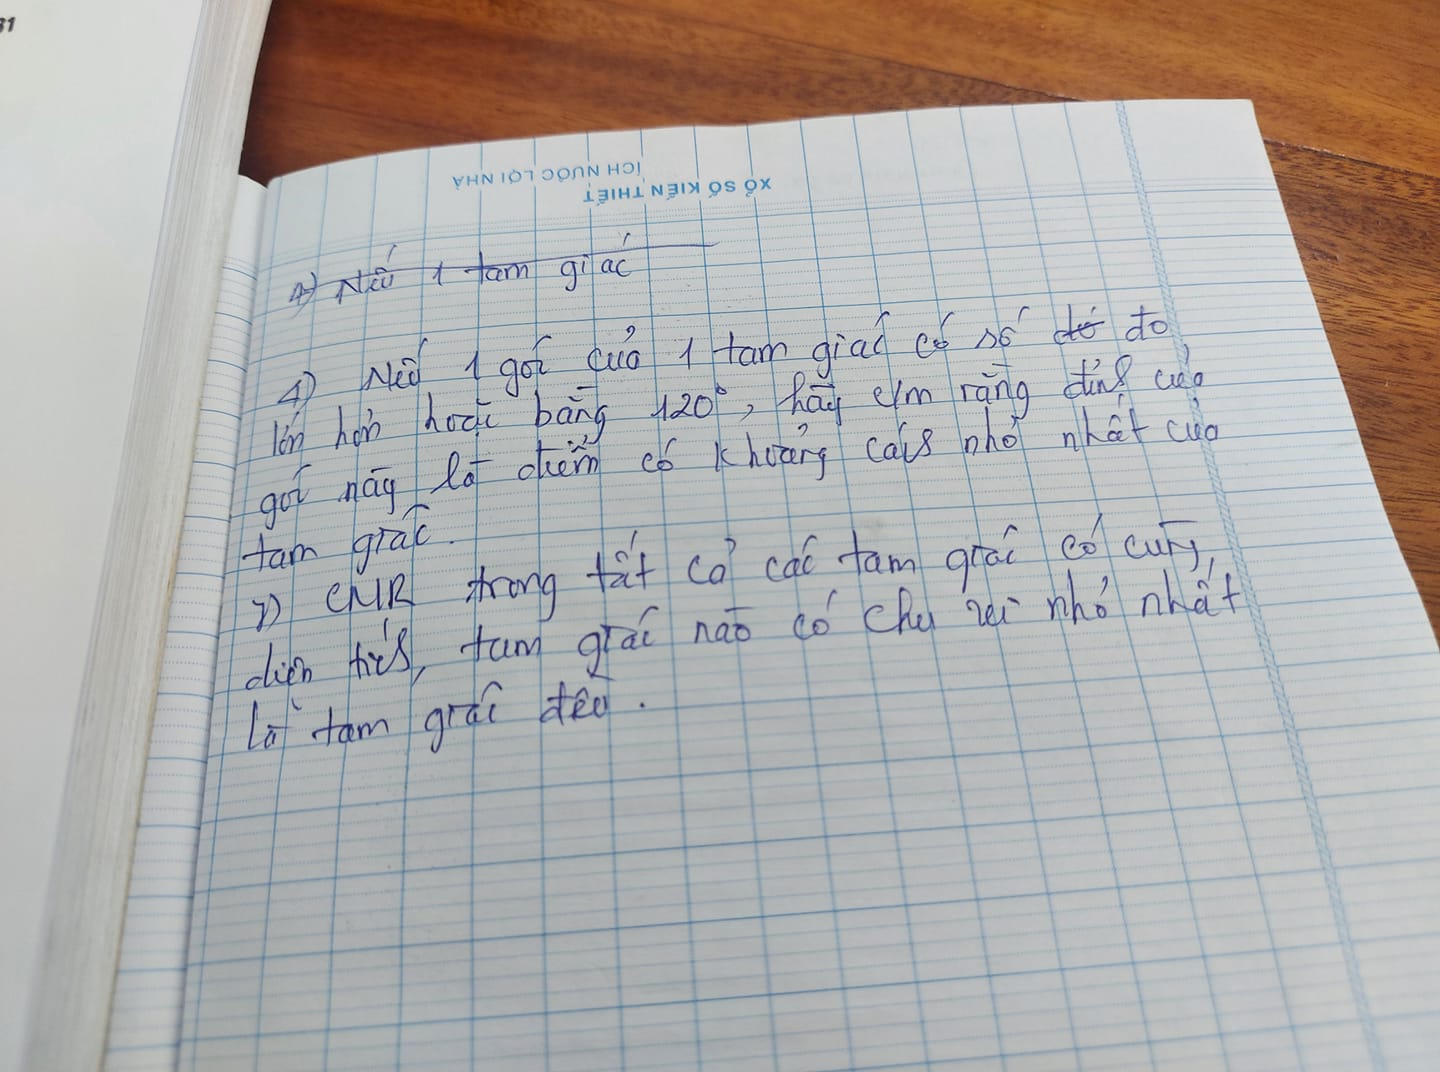 31
XỔ SỐ KIẾN THIẾT
ÍCH NƯỚC LỢI NHÀ
1) Nếu 1 tam giác
1) Nếu 1 góc của 1 tam giác có số đó đo
lớn hơn hoặc bằng 120°, hãy c/m rằng đỉnh của
góc này là điểm có khoảng cách nhỏ nhất của
tam giác.
2) CMR trong tất cả các tam giác có cùng
diện tích, tam giác nào có chu vi nhỏ nhất
là tam giác đều.